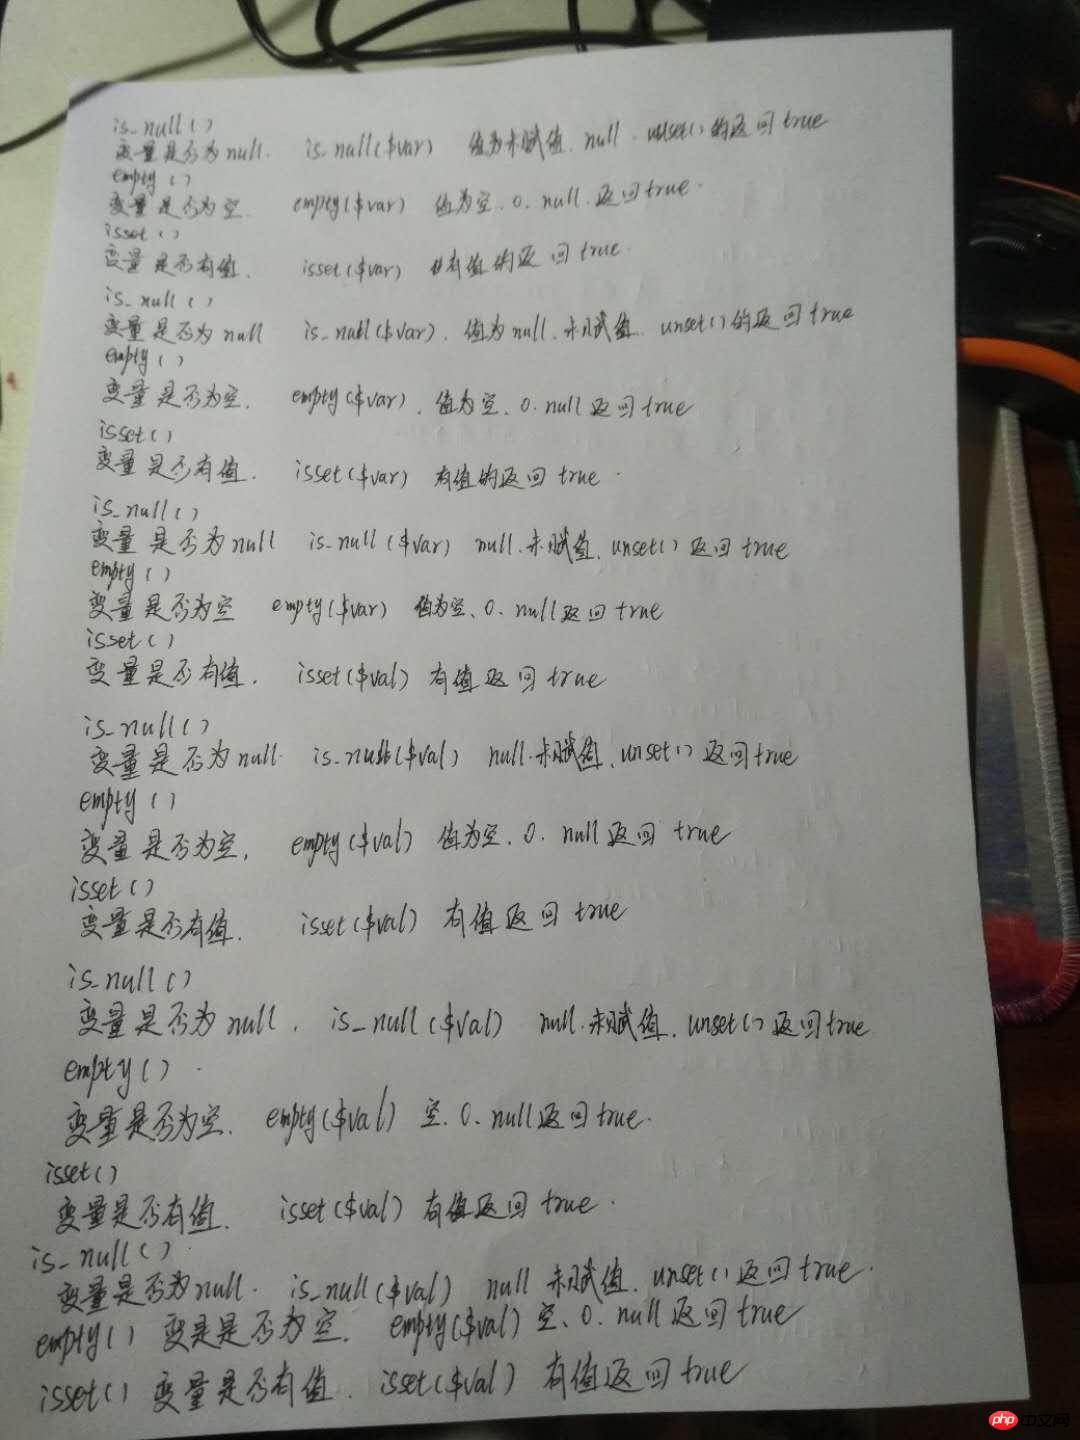 is_null()
变量是否为null. is_null($var) 值为未赋值、null、unset()的返回true
empty()
变量是否为空. empty($var) 值为空、0、null、返回true.
isset()
变量是否有值. isset($var) 有值的返回true.
is_null()
变量是否为null is_null($var). 值为null、未赋值、unset()的返回true
empty()
变量是否为空. empty($var). 值为空、0、null返回true
isset()
变量是否有值. isset($var) 有值的返回true.
is_null()
变量是否为null is_null($var) null、未赋值、unset()返回true
empty()
变量是否为空 empty($var) 值为空、0、null返回true
isset()
变量是否有值. isset($val) 有值返回true
is_null()
变量是否为null. is_null($val) null、未赋值、unset()返回true
empty()
变量是否为空. empty($val) 值为空、0、null返回true
isset()
变量是否有值. isset($val) 有值返回true
is_null()
变量是否为null. is_null($val) null、未赋值、unset()返回true
empty().
变量是否为空. empty($val) 空、0、null返回true.
isset()
变量是否有值. isset($val) 有值返回true.
is_null().
变量是否为null. is_null($val) null 未赋值、unset()返回true.
empty() 变是是否为空. empty($val) 空、0、null返回true
isset() 变量是否有值. isset($val) 有值返回true
php中文网